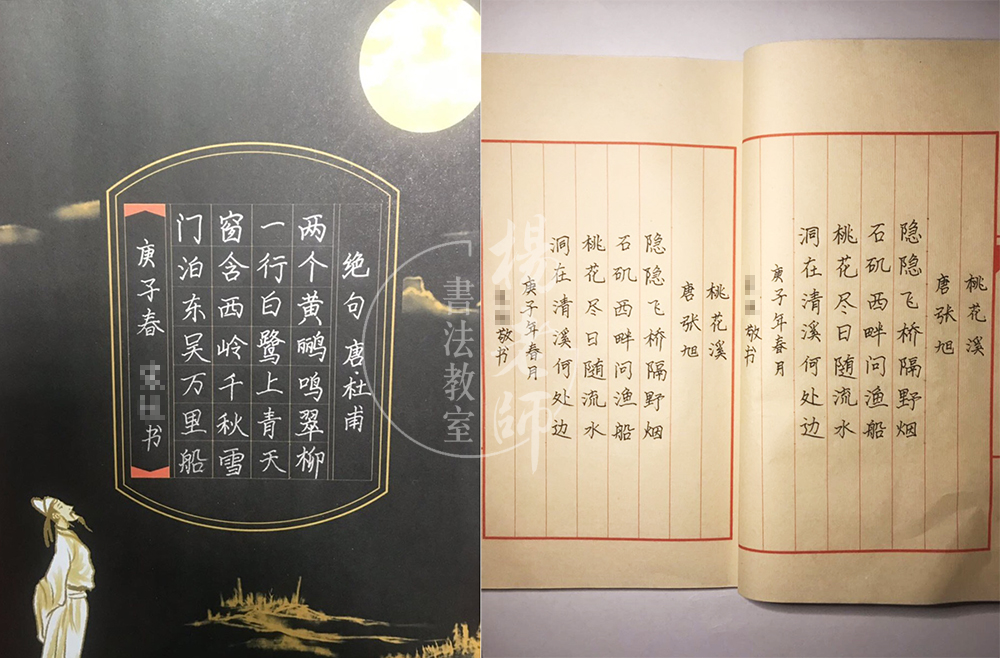 绝句 唐·杜甫
两个黄鹂鸣翠柳
一行白鹭上青天
窗含西岭千秋雪
门泊东吴万里船
庚子春
书
桃花溪
唐张旭
隐隐飞桥隔野烟
石矶西畔问渔船
桃花尽日随流水
洞在清溪何处边
庚子年春月
敬书
桃花溪
唐张旭
隐隐飞桥隔野烟
石矶西畔问渔船
桃花尽日随流水
洞在清溪何处边
庚子年春月
敬书
楊
師
「書法教室